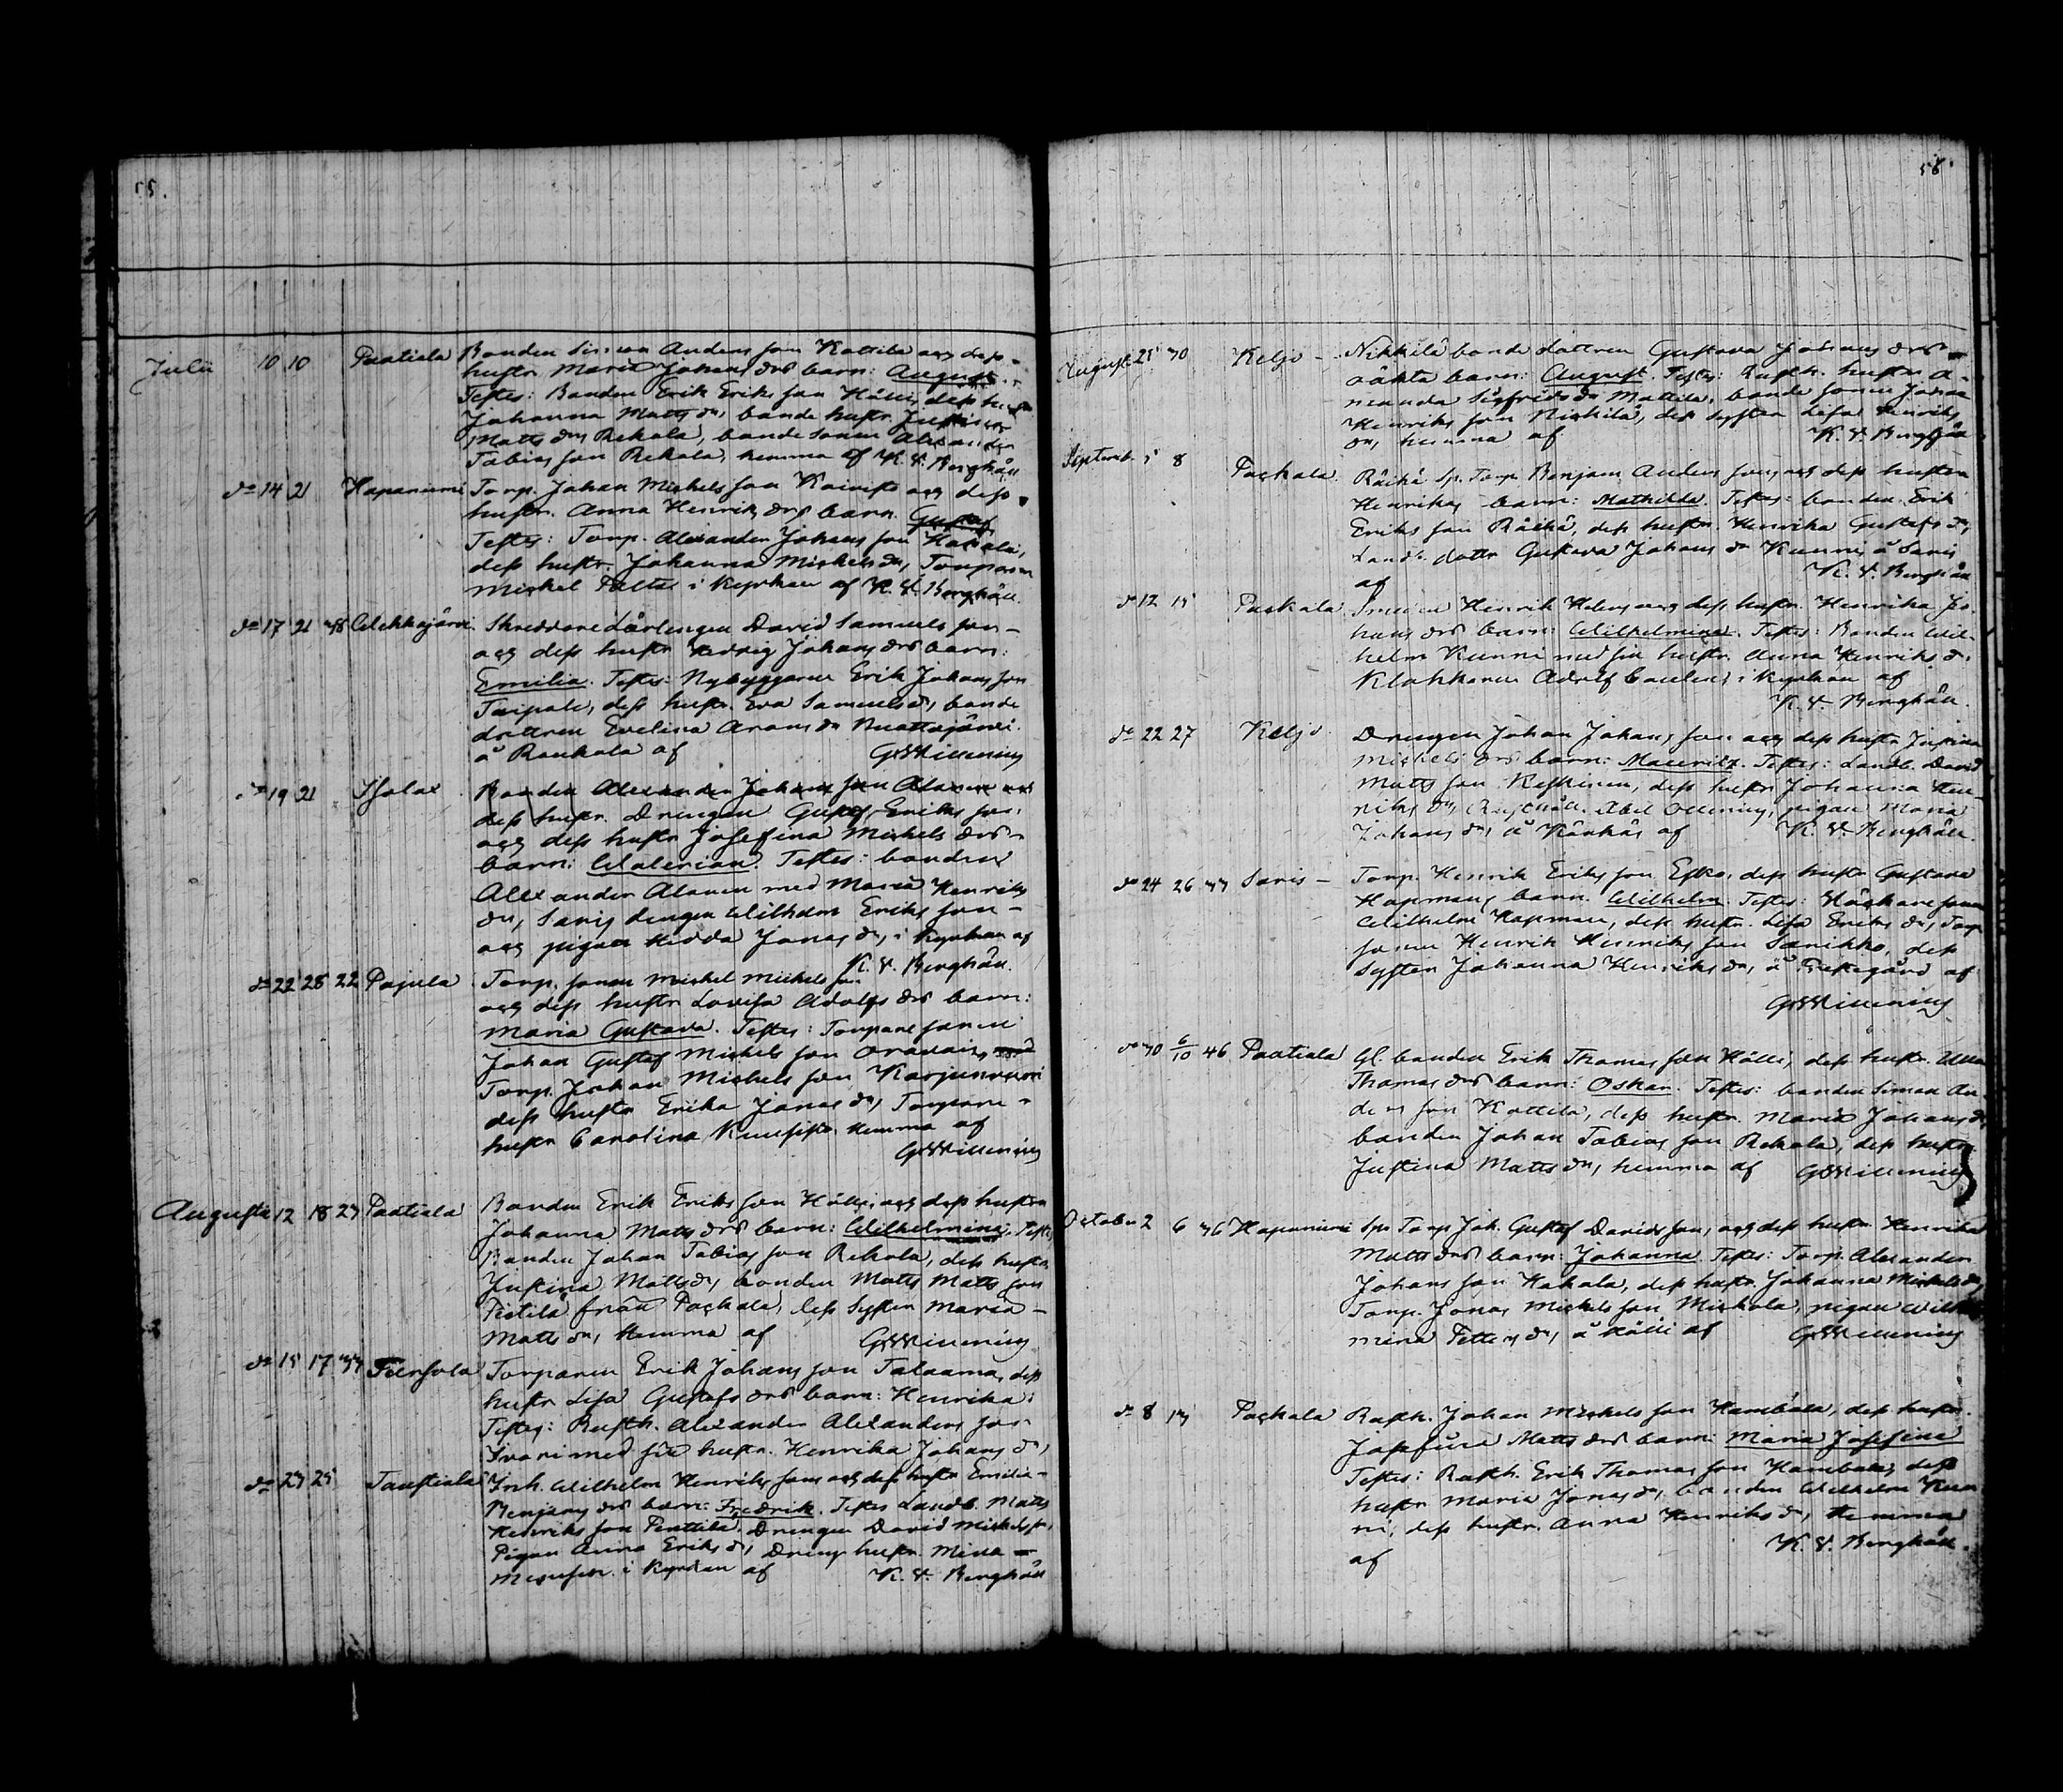 55.
Julii 10 10 Paatiala Bonden Simon Anders son Kottila och dess
hustr. Maria Johans drs barn: August.
Testes: Bonden Erik Eriks son Hölli, dess hustr
Johanna Matts dr, bonde hustr. Justina
Matts dr, Rekola, bonde sonen Alexander
Tobias son Rekola, hemma af K. F. Berghäll
do 14 21 Hapaniemi Torp. Johan Mickels son Koivisto och dess
hustr. Anna Henriks drs barn. Gustaf
Testes: Torp. Alexander Johans son Hakala,
dess hustr. Johanna Mickels dr, Torparen
Mickel Paltta i kyrkan af K. F. Berghäll.
do 17 21 38 Wehkajärvi Skreddare Lärlingen David Samuels son
och dess hustr Hedvig Johans drs barn:
Emilia. Testes: Nybyggaren Erik Johans son
Taipale, dess hustr. Eva Samuels dr, bonde
dottren Evelina Arons dr Vuottajärvi.
å Raukola af
do 19 21 Isalax Bonden Alexander Johans son Alanen och
dess hustr. Drengen Gustaf Eriks son
och dess hustr Josefina Mickels drs
barn: Walerian. Testes: bonden
Alexander Alanen med Maria Henriks
dr, Saris drengen Wilhelm Eriks son
och pigan Hedda Jonas dr, i kyrkan af
K. F. Berghäll.
do 22 28 22 Pajula Torp. sonen Mickel Mickels son
och dess hustr Lovisa Adolfs drs barn:
Maria Gustava. Testes: Torpare sonen
Johan Gustaf Mickels son Oravais,
Torp. Johan Mickels son Karjunvuori
dess hustr Erika Jonas dr, Torpare
hustr Carolina Kuusisto. hemma af
Augusti 12 18 23 Paatiala Bonden Erik Eriks son Hölli, och dess hustru
Johanna Matts drs barn: Wilhelmina. Testes
Bonden Johan Tobias son Rekola, dess hustr
Justina Matts dr, bonden Matts Matts son
Pietilä från Paskala, dess Syster Maria
Matts dr, hemma af
do 15 17 33 Torparen Erik Johans son Talaama, dess
hustr Lisa Gustafs drs barn: Henrika:
Testes: Rusth. Alexander Alexanders son
Ivari med sin hustr. Henrika Johans dr,
do 23 25 Taustiala Inh. Wilhelm Henriks son och dess hustr Emilia
Benjams drs barn: Fredrik. Testes Landb. Matts
Henriks son Penttilä, Drengen David Mickels son,
Pigan Anna Eriks dr, Dreng hustr. Mina
i kyrkan af K. F. Berghäll
56
August 25 30 Keljo Nikkilä bonde dottren Gustava Johans drs
oäkta barn: August. Testes: Rusth. hustr A-
manda Sigfrids dr Mattila, bonde sonen Johan
Henriks son Nickilä, dess Syster Lisa Henriks
dr, hemma af K. F. Berghäll
Septemb. 5 8 Paskala Räikä Sp. Torp. Benjam Anders son, och dess hustru
Henrikas barn: Mathilda. Testes: bonden Erik
Eriks son Räikä, dess hustr. Henrika Gustafs dr,
Landb. dottr Gustava Johans dr Kunni, å Saris
af K. F. Berghäll
do 12 15 Paskala Smeden Henrik Helens och dess hustr. Henrika Jo-
hans drs barn: Wilhelmina. Testes: Bonden Wil-
helm Kunni med sin hustr. Anna Henriks dr
Klockaren Adolf i kyrkan af
K. F. Berghäll.
do 22 27 Keljo Drengen Johan Johans son och dess hustr Justina
Mickels drs barn: Mauritz. Testes: Landb. David
Matts son Keskinen, dess hustr Johanna Hen-
riks dr, Rusthåll. Abel pigan Maria
Johans dr, å af K. F. Berghäll.
do 24 26 33 Saris Torp. Henrik Eriks son Esko, dess hustr Gustava
Hapmans barn. Wilhelm. Testes:
Wilhelm Hapman, dess hustr. Lisa Eriks dr, Torp
sonen Henrik Henriks son Sarikko, dess
Syster Johanna Henriks dr, å Prestegård af
do 30 6/10 46 Paatiala Gl. bonden Erik Thomas son Hölli, dess hustr. Ulla
Thomas drs barn: Oskar. Testes: bonden Simon An-
ders son Kottila, dess hustr. Maria Johans dr,
bonden Johan Tobias son Rekola, dess hustr.
Justina Matts dr, hemma af
October 2 6 36 Hapaniemi Sp. Torp. Joh. Gustaf Davids son, och dess hustr. Henrika
Matts drs barn: Johanna. Testes: Torp. Alexander
Johans son Hakala, dess hustr. Johanna Mickels dr,
Torp. Jonas Mickels son Mickola, pigan Wilhel
mina Petters dr, å Hölli af
do 8 13 Paskala Rusth. Johan Mickels son Hambala, dess hustr.
Josefina Matts drs barn: Maria Josefina
Testes: Rusth. Erik Thomas son Hambala, dess
hustr Maria Jonas dr, bonden Wilhelm Kun
ni, dess hustr. Anna Henriks dr, Hemma
af K. F. Berghäll.